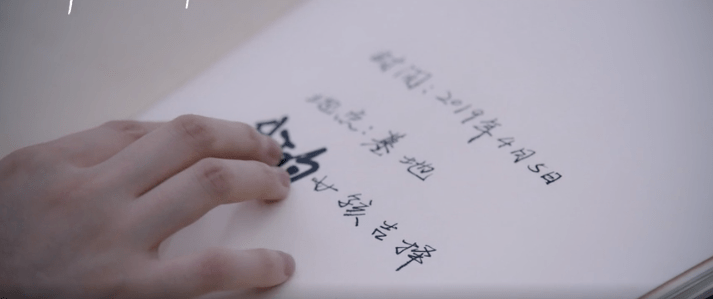 时间：2019年4月5日
地点：墓地
女孩吉择